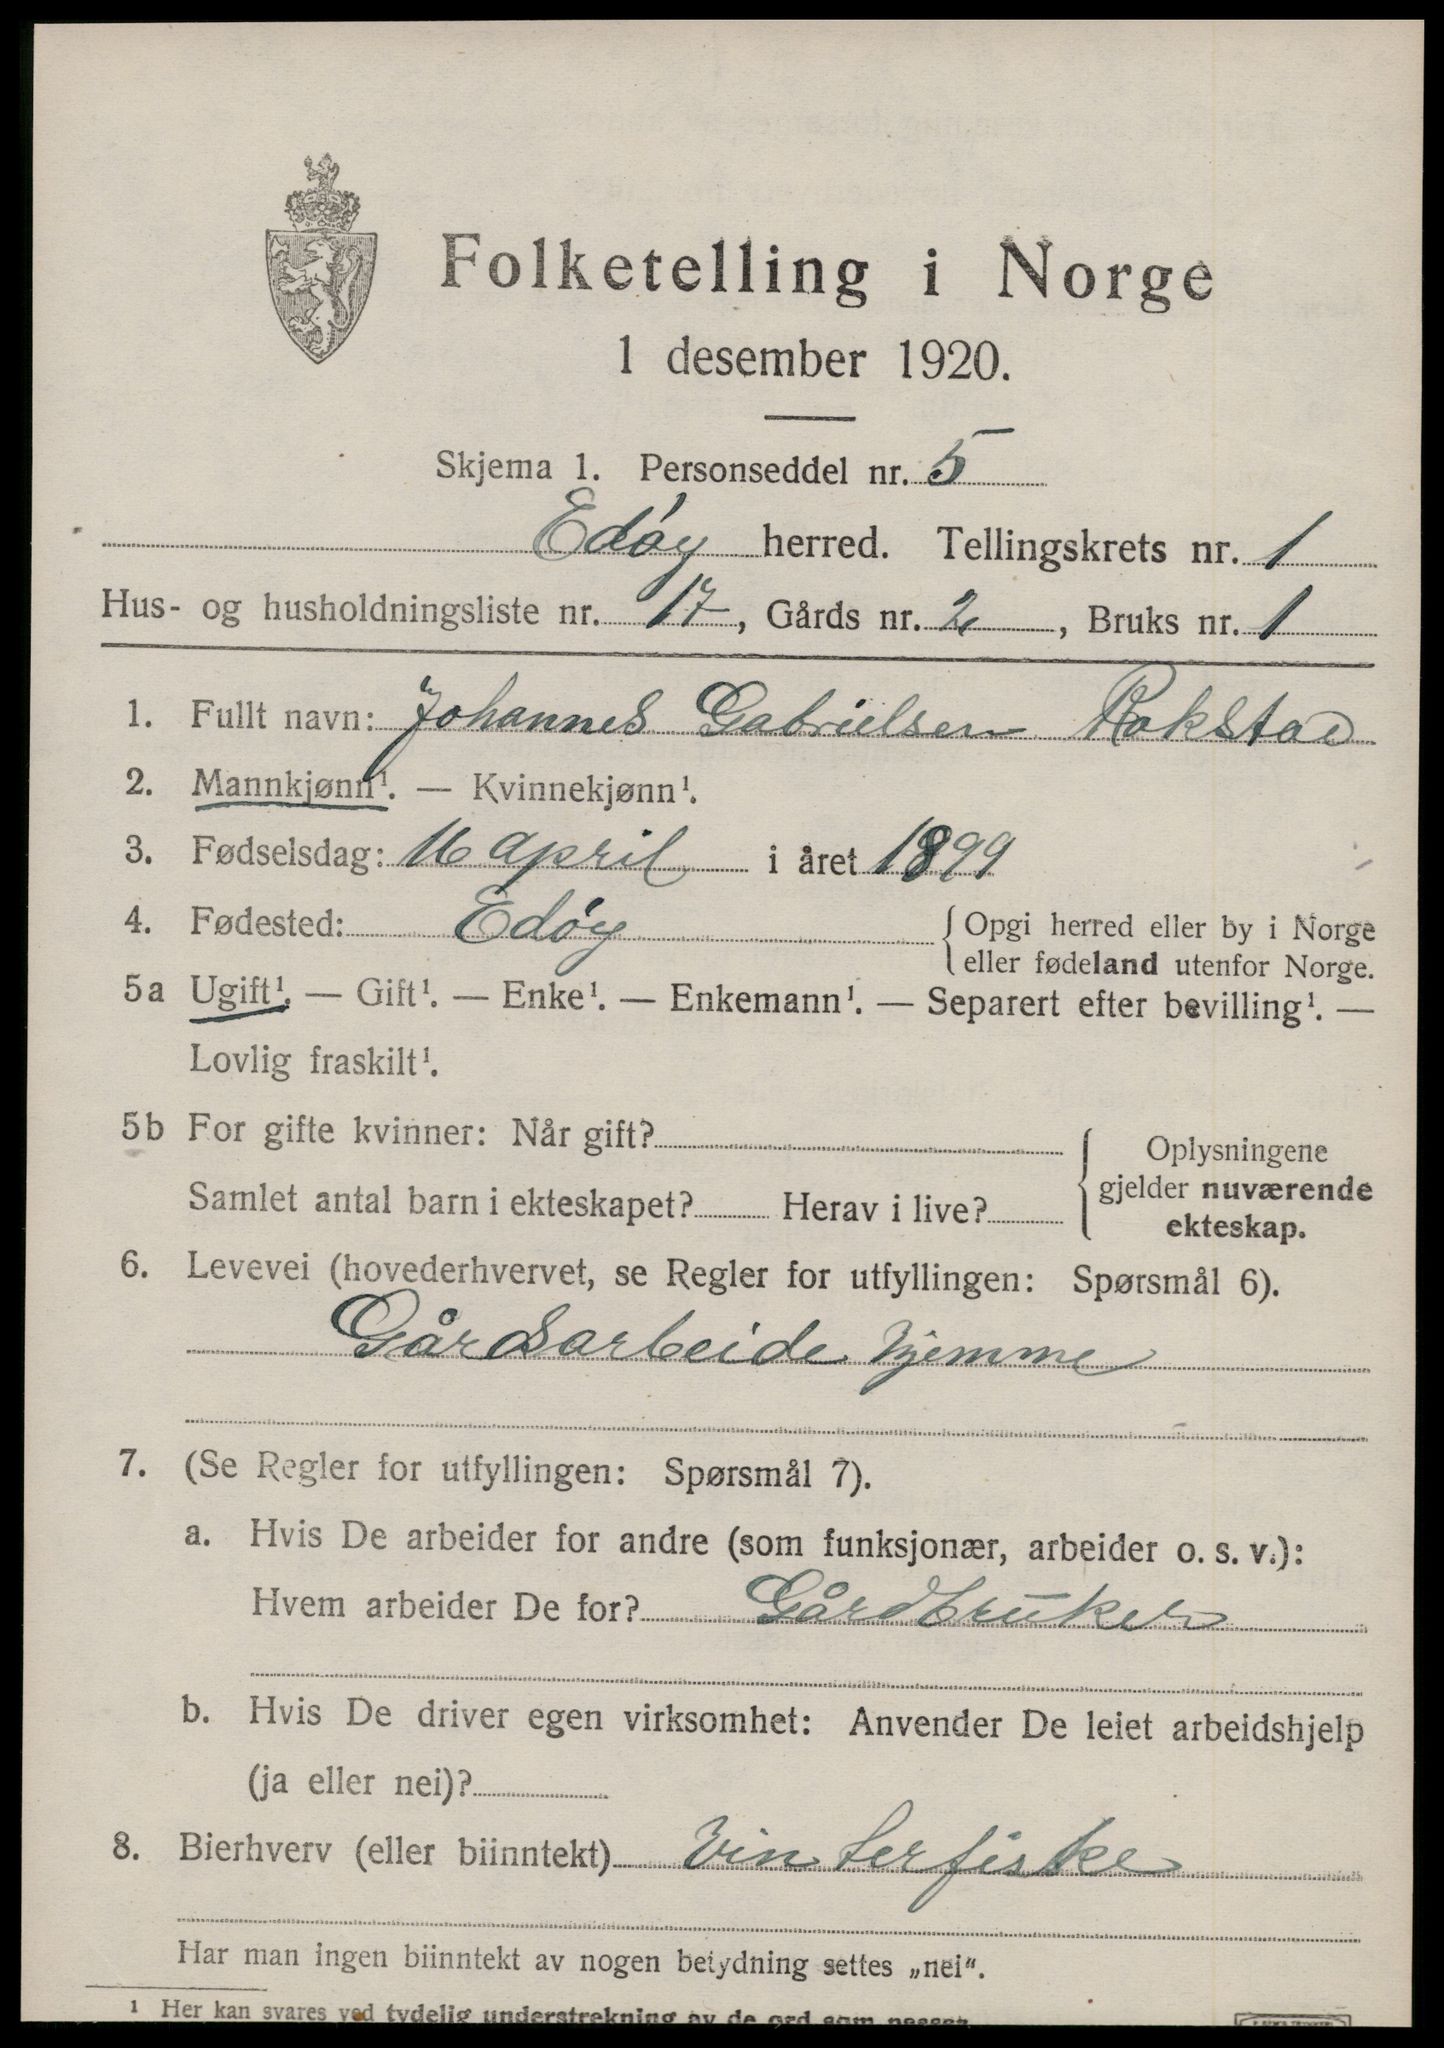 Folketelling i Norge
1 desember 1920.
Skjema 1. Personseddel nr. 5
Edøy herred. Tellingskrets nr. 1
Hus- og husholdningsliste nr. 17, Gårds nr. 2, Bruks nr. 1
1. Fullt navn: Johannes Gabrielsen Rokstad
2. Mannkjønn¹. — Kvinnekjønn¹.
3. Fødselsdag: 16 april i året 1899
4. Fødested: Edøy {Opgi herred eller by i Norge
eller fødeland utenfor Norge.
5a Ugift¹. — Gift¹. — Enke¹. — Enkemann¹. — Separert efter bevilling¹. —
Lovlig fraskilt¹.
5b For gifte kvinner: Når gift?
Samlet antal barn i ekteskapet? Herav i live?
{Oplysningene
gjelder nuværende
ekteskap.
6. Levevei (hovederhvervet, se Regler for utfyllingen: Spørsmål 6).
Gårdsarbeide hjemme
7. (Se Regler for utfyllingen: Spørsmål 7).
a. Hvis De arbeider for andre (som funksjonær, arbeider o. s. v.):
Hvem arbeider De for? Gårdbruker
b. Hvis De driver egen virksomhet: Anvender De leiet arbeidshjelp
(ja eller nei)?
8. Bierhverv (eller biinntekt) Vinterfiske
Har man ingen biinntekt av nogen betydning settes „nei".
¹ Her kan svares ved tydelig understrekning av de ord som passer